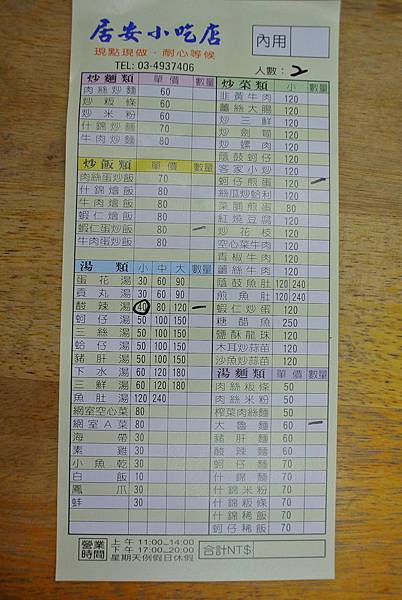 居安小吃店
內用
現點現做，耐心等候
TEL: 03-4937406
人數：2
炒麵類 單價 數量
肉絲炒麵 60
炒粄條 60
炒米粉 60
什錦炒麵 70
牛肉炒麵 80
炒飯類 單價 數量
肉絲蛋炒飯 70
什錦燴飯 80
牛肉燴飯 80
蝦仁燴飯 80
蝦仁蛋炒飯 80 一
牛肉蛋炒飯 80
湯類 小 中 大 數量
蛋花湯 30 60 90
貢丸湯 30 60 90
酸辣湯 40 80 120 一
蚵仔湯 50 100 150
三絲湯 50 100 150
蛤仔湯 50 100 150
豬肝湯 50 100 150
下水湯 60 120 180
三鮮湯 60 120 180
魚肚湯 120 240
網室空心菜 80
網室A菜 80
海帶 30
素雞 30
小魚乾 30
白飯 10
鳳爪 30
蚌 30
炒菜類 小 數量
韭黃牛肉 120
薑絲大腸 120
炒三鮮 120
炒劍筍 120
炒螺肉 120
蔭鼓蚵仔 120
客家小炒 120
蚵仔煎蛋 120 一
絲瓜炒蛤利 120
菜脯煎蛋 80
紅燒豆腐 120
炒花枝 120
空心菜牛肉 120
青椒牛肉 120
薑絲牛肉 120
蔭鼓魚肚 120 240
煎魚肚 120 240
蝦仁炒蛋 120
糖醋魚 250
鹽酥龍珠 120
木耳炒蒜苗 120
沙魚炒蒜苗 120
湯麵類 單價 數量
肉絲粄條 50
肉絲米粉 50
榨菜肉絲麵 50
大魯麵 60 一
豬肝麵 60
酸辣麵 60
蚵仔麵 70
什錦麵 70
什錦米粉 70
什錦稀飯 70
蚵仔稀飯 70
營業時間
上午 11:00~14:00
下午 17:00~20:00
星期天例假日休假
合計NT$